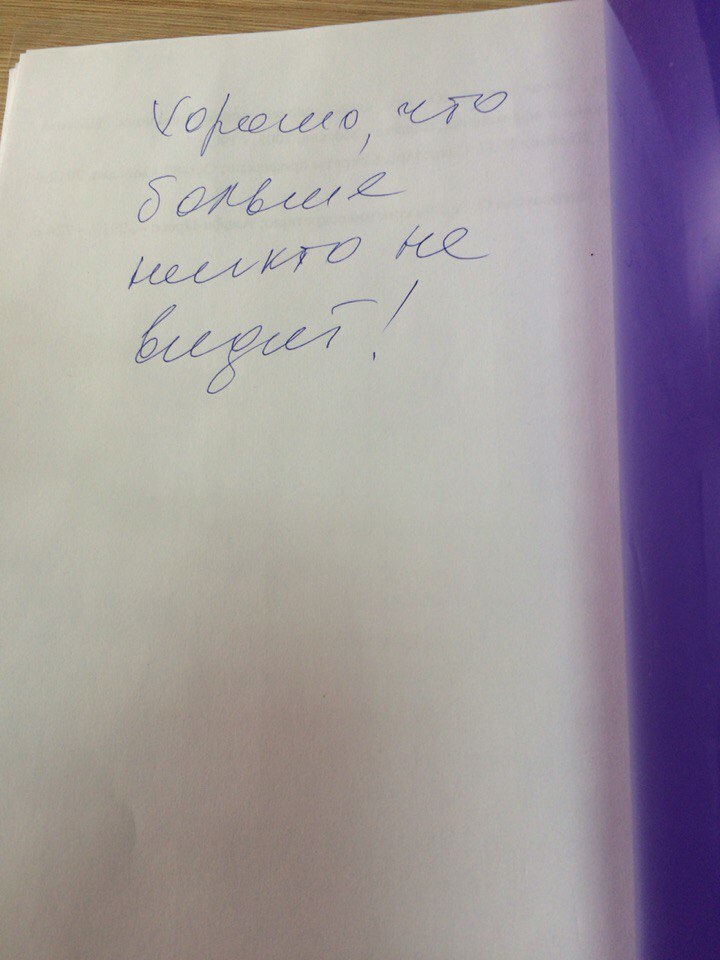 Хорошо, что
больше
никто не
видит!